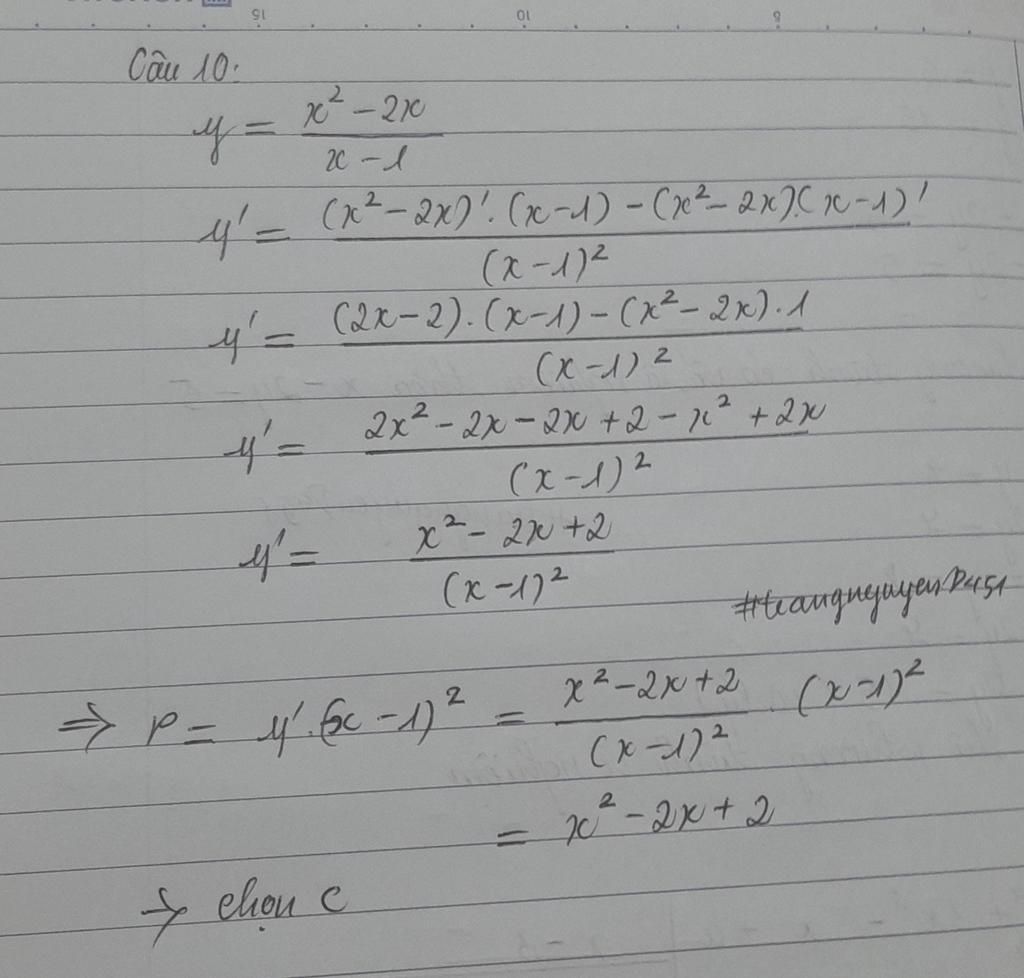 Câu 10:
y = \frac{x^2 - 2x}{x - 1}
y' = \frac{(x^2 - 2x)' . (x - 1) - (x^2 - 2x).(x - 1)'}{(x - 1)^2}
y' = \frac{(2x - 2) . (x - 1) - (x^2 - 2x) . 1}{(x - 1)^2}
y' = \frac{2x^2 - 2x - 2x + 2 - x^2 + 2x}{(x - 1)^2}
y' = \frac{x^2 - 2x + 2}{(x - 1)^2}
⇒ P = y' . (x - 1)^2 = \frac{x^2 - 2x + 2}{(x - 1)^2} . (x - 1)^2
= x^2 - 2x + 2
→ chọn C